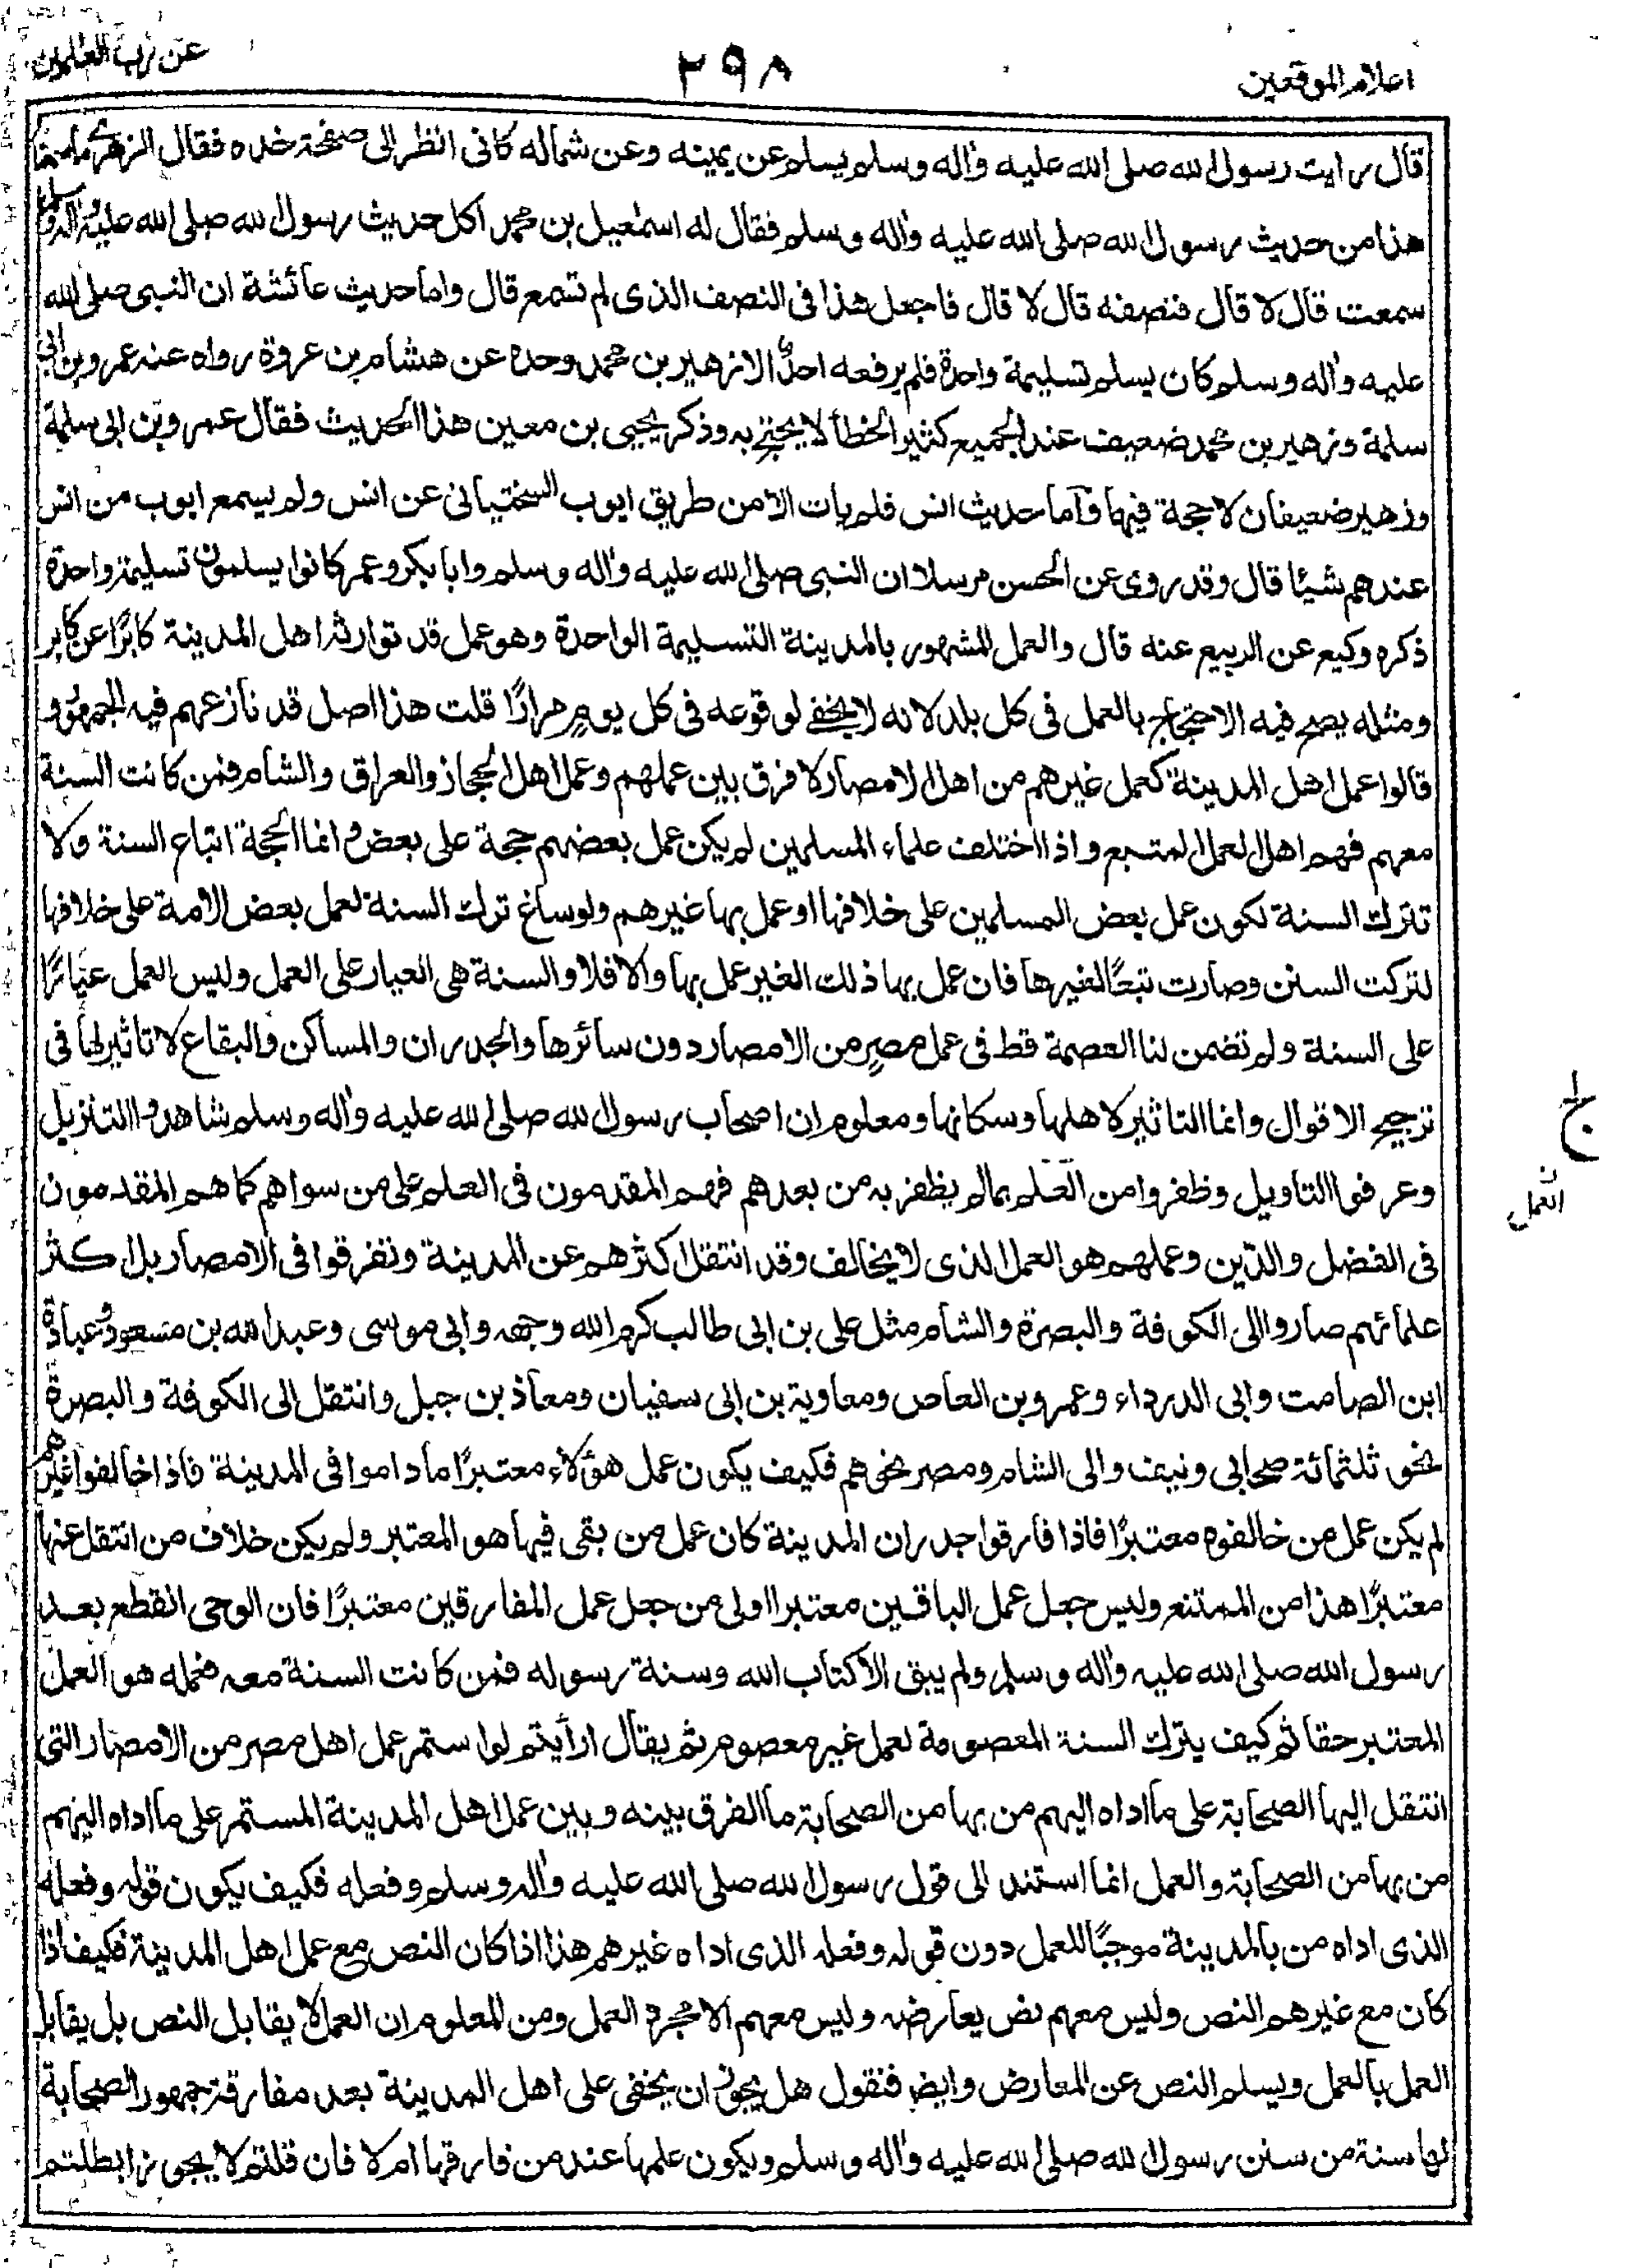 اعلام الموقعين
٢٩٨
عن رب العلمين
قال رايت رسول الله صلى الله عليه واله وسلم يسلم عن يمينه وعن شماله كانى انظر الى صفحة خده فقال الزهرى ما سمعنا
هذا من حديث رسول الله صلى الله عليه واله وسلم فقال له اسمعيل بن محمد اكل حديث رسول الله صلى الله عليه واله وسلم
سمعت قال لا قال فنصفه قال لا قال فاجعل هذا فى النصف الذى لم تسمع قال واما حديث عائشة ان النبى صلى الله
عليه واله وسلم كان يسلم تسليمة واحدة فلم يرفعه احدٌ الا زهير بن محمد وحده عن هشام بن عروة رواه عنه عمرو بن ابى
سلمة وزهير بن محمد ضعيف عند الجميع كثير الخطأ لا يحتج به وذكر يحيى بن معين هذا الحديث فقال عمرو بن ابى سلمة
وزهير ضعيفان لا حجة فيهما واما حديث انس فلم يات الا من طريق ايوب السختيانى عن انس ولم يسمع ايوب من انس
عندهم شيئا قال وقد روى عن الحسن مرسلا ان النبى صلى الله عليه واله وسلم وابا بكر وعمر كانوا يسلمون تسليمة واحدة
ذكره وكيع عن الربيع عنه قال والعمل المشهور بالمدينة التسليمة الواحدة وهو عمل قد توارثه اهل المدينة كابرًا عن كابر
ومثله يصح فيه الاحتجاج بالعمل فى كل بلد لانه لا يخفے لوقوعه فى كل يومٍ مرارًا قلت هذا اصل قد نازعهم فيه الجمهور و
قالوا عمل اهل المدينة كعمل غيرهم من اهل الامصار لا فرق بين عملهم وعمل اهل الحجاز والعراق والشام فمن كانت السنة
معهم فهم اهل العمل المتبع واذا اختلف علماء المسلمين لم يكن عمل بعضهم حجة على بعض وانما الحجة اتباع السنة ولا
تترك السنة لكون عمل بعض المسلمين على خلافها او عمل بها غيرهم ولو ساغ ترك السنة لعمل بعض الامة على خلافها
لتركت السنن وصارت تبعًا لغيرها فان عمل بها ذلك الغير عمل بها والا فلا والسنة هى العيار على العمل وليس العمل عيارًا
على السنة ولم تضمن لنا العصمة قط فى عمل مصرٍ من الامصار دون سائرها والجدران والمساكن والبقاع لا تاثير لها فى
ترجيح الاقوال وانما التاثير لاهلها وسكانها ومعلوم ان اصحاب رسول الله صلى الله عليه واله وسلم شاهدوا التنزيل
وعرفوا التاويل وظفروا من العلم بما لم يظفر به من بعدهم فهم المقدمون فى العلم على من سواهم كما هم المقدمون
فى الفضل والدّين وعملهم هو العمل الذى لا يخالف وقد انتقل اكثرهم عن المدينة وتفرقوا فى الامصار بل اكثر
علمائهم صاروا الى الكوفة والبصرة والشام مثل على بن ابى طالب كرم الله وجهه وابى موسى وعبد الله بن مسعود وعبادة
ابن الصامت وابى الدرداء وعمرو بن العاص ومعاوية بن ابى سفيان ومعاذ بن جبل وانتقل الى الكوفة والبصرة
نحو ثلثمائة صحابى ونيف والى الشام ومصر نحوهم فكيف يكون عمل هؤلاء معتبرًا ما داموا فى المدينة فاذا خالفوا غيرهم
لم يكن عمل من خالفوه معتبرًا فاذا فارقوا جدران المدينة كان عمل من بقى فيها هو المعتبر ولم يكن خلاف من انتقل عنها
معتبرًا هذا من الممتنع وليس جعل عمل الباقين معتبرا اولى من جعل عمل المفارقين معتبرًا فان الوحى انقطع بعد
رسول الله صلى الله عليه واله وسلم ولم يبق الا كتاب الله وسنة رسوله فمن كانت السنة معه فعمله هو العمل
المعتبر حقا ثم كيف يترك السنة المعصومة لعمل غير معصوم ثم يقال ارأيتم لو استمر عمل اهل مصر من الامصار التى
انتقل اليها الصحابة على ما اداه اليهم من بها من الصحابة ما الفرق بينه وبين عمل اهل المدينة المستمر على ما اداه اليهم
من بها من الصحابة والعمل انما استند الى قول رسول الله صلى الله عليه واله وسلم وفعله فكيف يكون قوله وفعله
الذى اداه من بالمدينة موجبًا للعمل دون قوله وفعله الذى اداه غيرهم هذا اذا كان النص مع عمل اهل المدينة فكيف اذا
كان مع غيرهم النص وليس معهم نص يعارضه وليس معهم الا مجرد العمل ومن المعلوم ان العمل لا يقابل النص بل يقابل
العمل بالعمل ويسلم النص عن المعارض وايضا فنقول هل يجوز ان يخفى على اهل المدينة بعد مفارقة جمهور الصحابة
لها سنة من سنن رسول الله صلى الله عليه واله وسلم ويكون علمها عند من فارقها ام لا فان قلتم لا يجوز ابطلتم
العمل